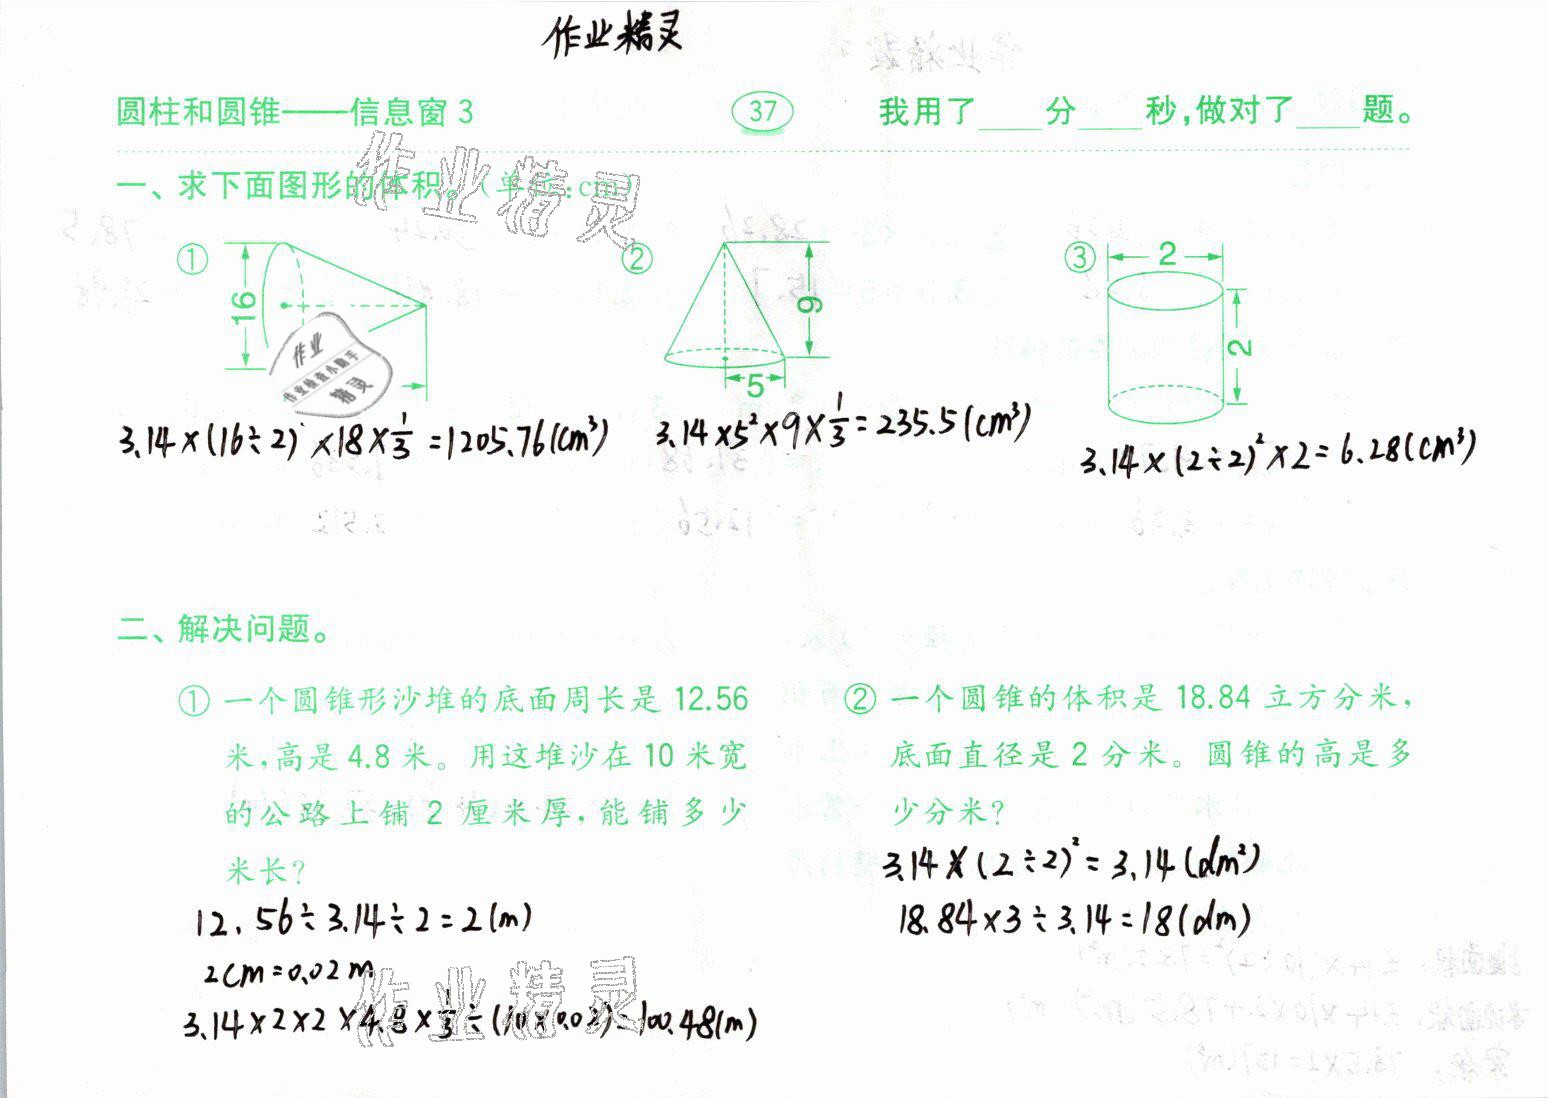 作业精灵
圆柱和圆锥——信息窗 3 37 我用了____分____秒,做对了____题。
一、求下面图形的体积。(单位:cm)
① 16
② 9 5
③ 2 2
3.14×(16÷2)²×18×1/3=1205.76(cm³)
3.14×5²×9×1/3=235.5(cm³)
3.14×(2÷2)²×2=6.28(cm³)
二、解决问题。
① 一个圆锥形沙堆的底面周长是 12.56
米,高是 4.8 米。用这堆沙在 10 米宽
的公路上铺 2 厘米厚,能铺多少
米长?
12.56÷3.14÷2=2(m)
2cm=0.02m
3.14×2×2×4.8×1/3÷(10×0.02)=100.48(m)
② 一个圆锥的体积是 18.84 立方分米,
底面直径是 2 分米。圆锥的高是多
少分米?
3.14×(2÷2)²=3.14(dm²)
18.84×3÷3.14=18(dm)
作业精灵
作业
作业检查小助手
精灵
作业精灵